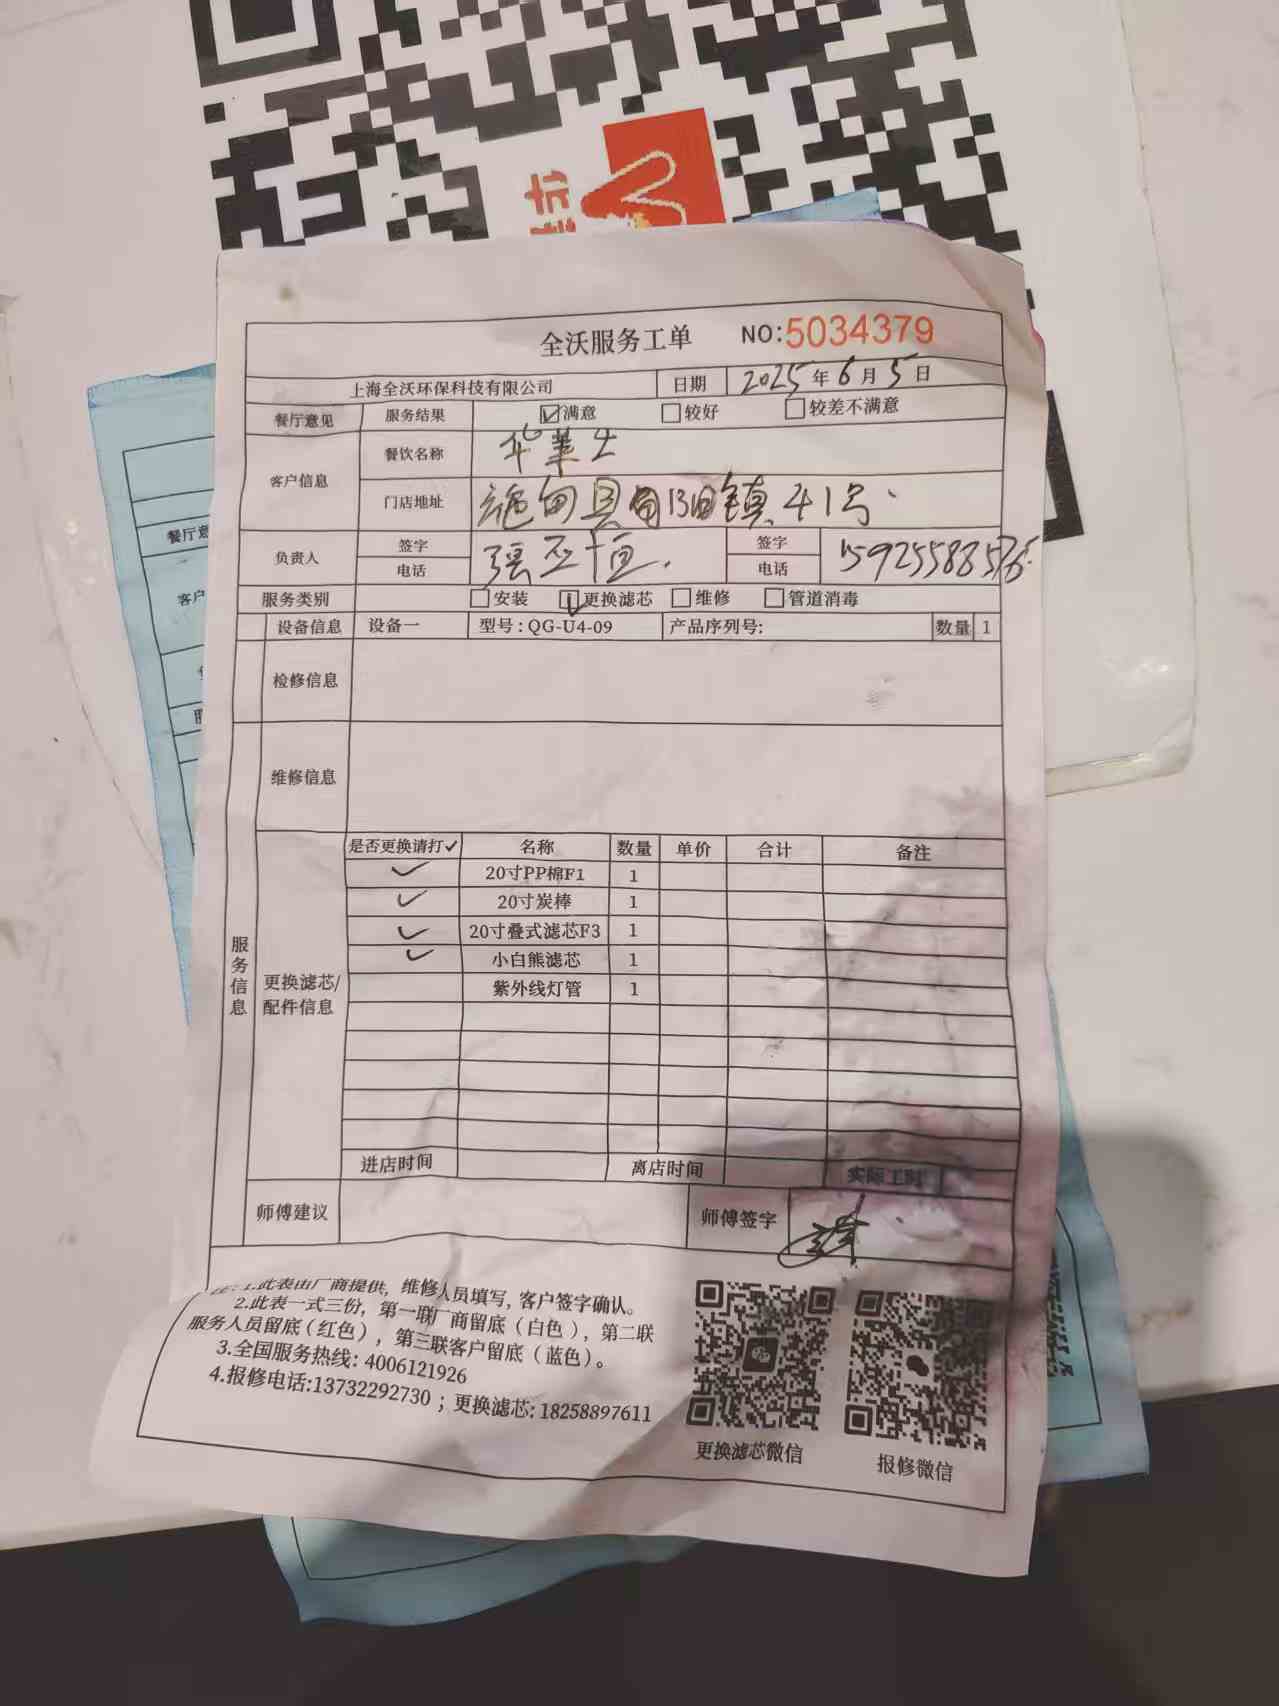 全沃服务工单 NO:5034379
上海全沃环保科技有限公司 日期 2025年6月5日
餐厅意见 服务结果 ☑满意 □较好 □较差不满意
客户信息 餐饮名称 华莱士
门店地址 施甸县甸阳镇41号
负责人 签字 张 签字
电话 电话 159255885
服务类别 □安装 ☑更换滤芯 □维修 □管道消毒
设备信息 设备一 型号:QG-U4-09 产品序列号: 数量 1
检修信息
维修信息
服务信息
更换滤芯/
配件信息
是否更换请打✓ 名称 数量 单价 合计 备注
✓ 20寸PP棉F1 1
✓ 20寸炭棒 1
✓ 20寸叠式滤芯F3 1
✓ 小白熊滤芯 1
紫外线灯管 1
进店时间 离店时间 实际工时
师傅建议 师傅签字
注:1.此表由厂商提供, 维修人员填写, 客户签字确认。
2.此表一式三份, 第一联厂商留底(白色), 第二联
服务人员留底(红色), 第三联客户留底(蓝色)。
3.全国服务热线: 4006121926
4.报修电话:13732292730 ; 更换滤芯: 18258897611
更换滤芯微信 报修微信
餐厅意
客户